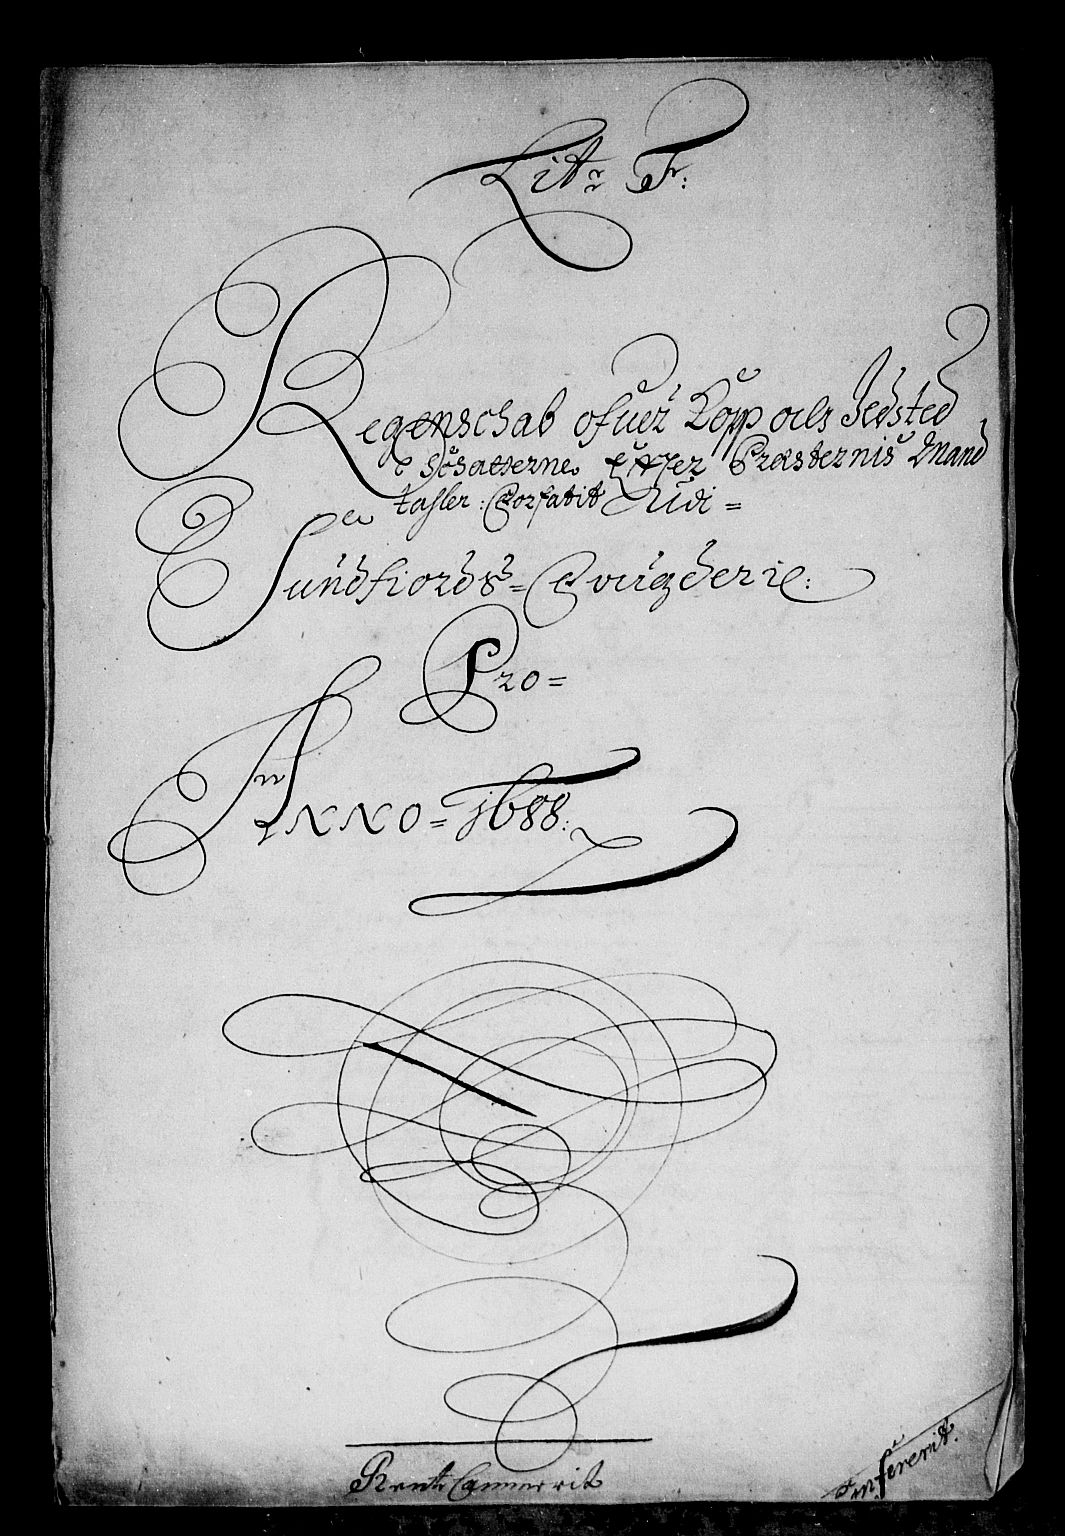 Litr: F:
Regenschab ofuer Kopp och Ildsted
Schatterne Effter Præsternis Mand
taller: Forfatit Udi =
Sundfiords = Fougderie:
Pro =
Anno = 1688:
Rente Cammerrit